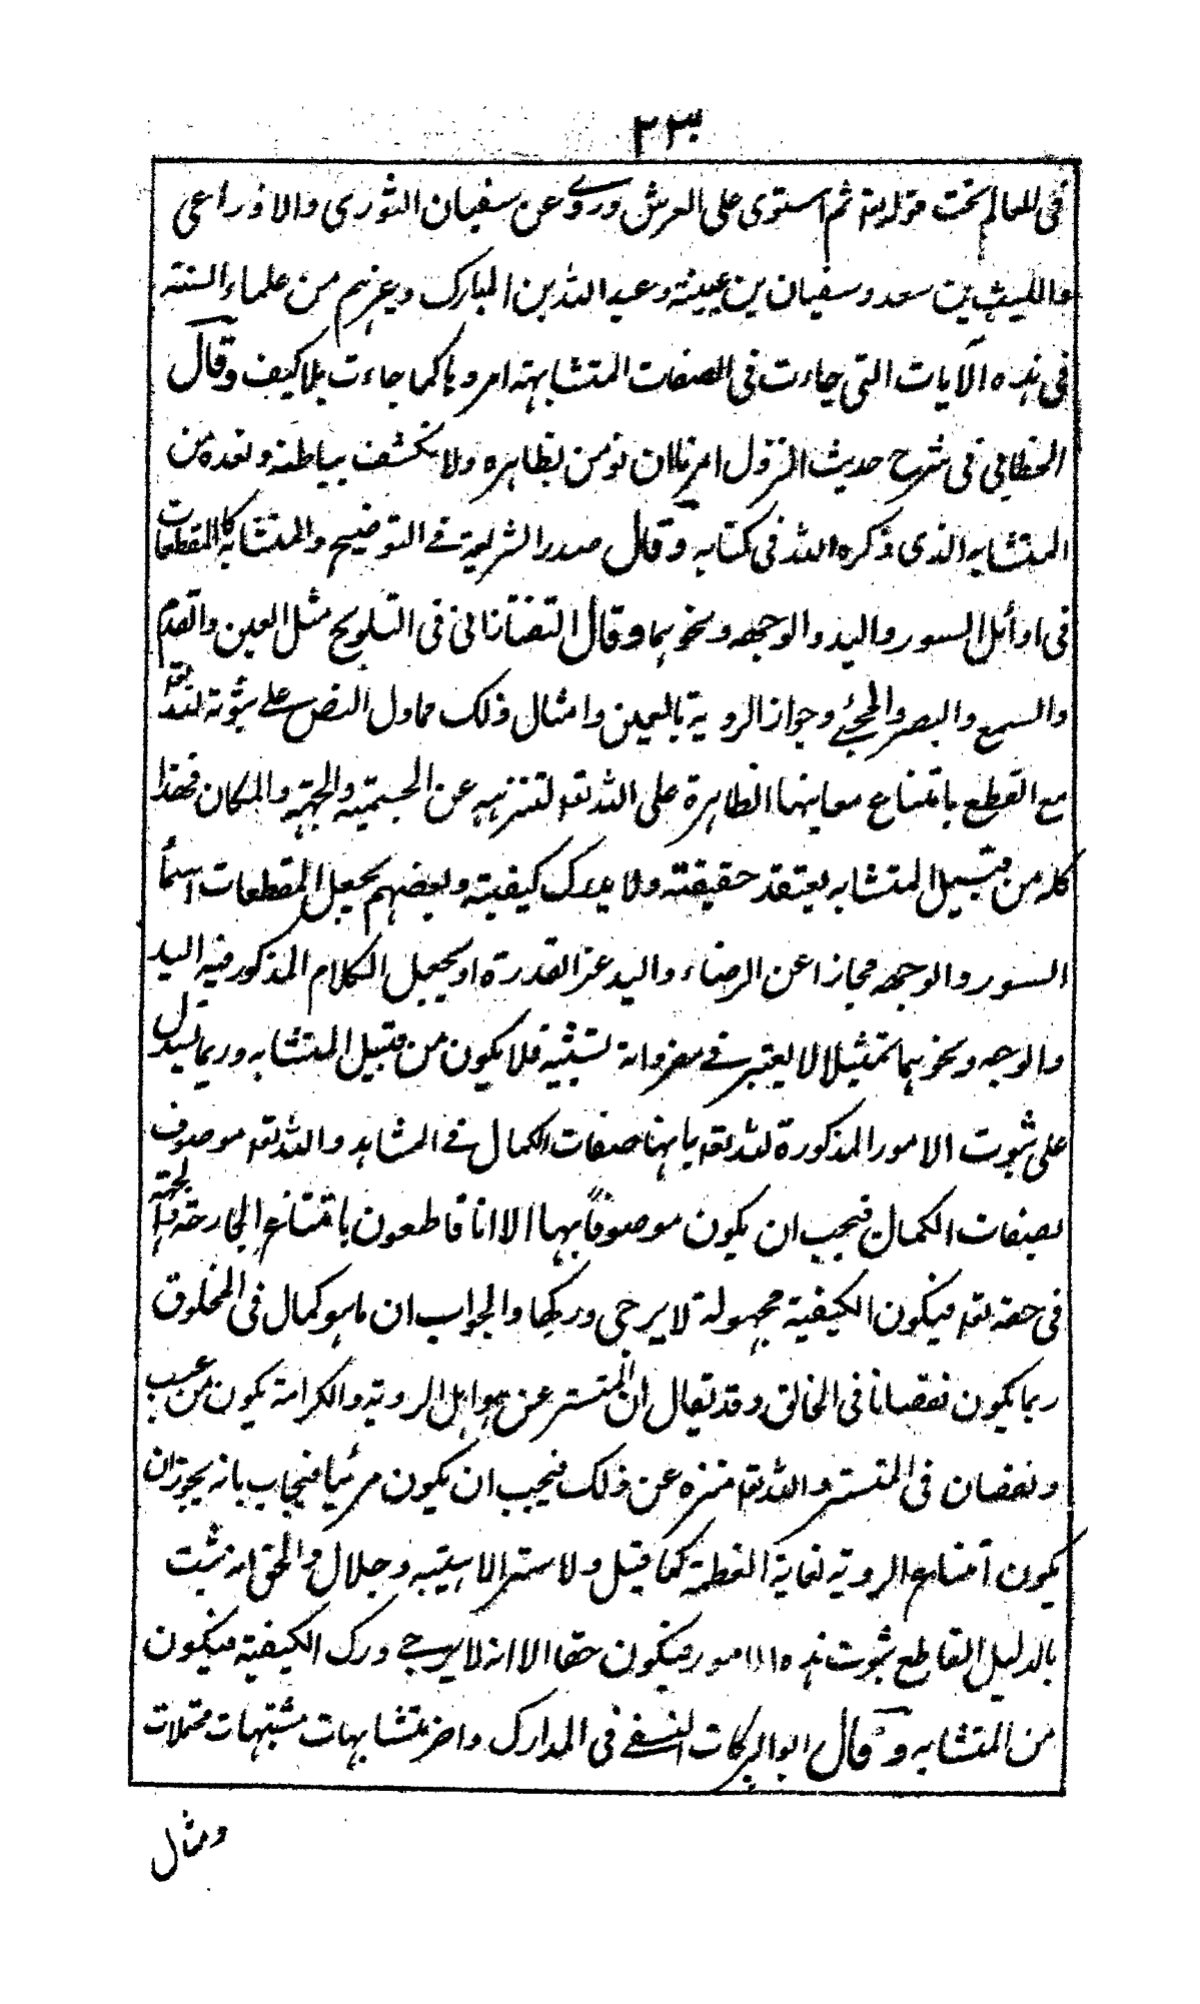 ٢٣
فى المعالم تحت قوله تعه ثم استوى على العرش وروى عن سفيان الثورى والاوزاعى
والليث بن سعد وسفيان بن عيينة وعبد الله بن المبارك وغيرهم من علماء السنة
فى هذه الآيات التى جاءت فى الصفات المتشابهة امروها كما جاءت بلا كيف وقال
الخطابى فى شرح حديث النزول امرنا ان نومن بظاهره ولا نكشف بباطنه ونعده من
المتشابه الذى ذكره الله فى كتابه وقال صدر الشريعة فى التوضيح والمتشابه كالمقطعات
فى اوائل السور واليد والوجه ونحوهما وقال التفتازانى فى التلويح مثل العين والقدم
والسمع والبصر والمجئ وجواز الروية بالعين وامثال ذلك مما دل النص على ثبوته لله تعه
مع القطع بامتناع معاينها الظاهرة على الله تعه لتنزهه عن الجسمية والجهة والمكان فهذا
كله من قبيل المتشابه يعتقد حقيقته ولا يدرك كيفيته وبعضهم يجعل المقطعات اسما
السور والوجه مجازا عن الرضاء واليد عن القدرة او يجعل الكلام المذكور فيه اليد
والوجه ونحوهما تمثيلا لا يعتبر فى مفرداته تشبيه فلا يكون من قبيل المتشابه وربما يستدل
على ثبوت الامور المذكورة لله تعه بانها صفات الكمال فى الشاهد والله تعه موصوف
بصفات الكمال فيجب ان يكون موصوفا بها الا انا قاطعون بامتناع الجارحة والجهة
فى حقه تعه فيكون الكيفية مجهولة لا يرجى دركها والجواب ان ما هو كمال فى المخلوق
ربما يكون نقصانا فى الخالق وقد تعال ان المتستر عن هو اهل الروية والكرامة يكون من عيب
ونقصان فى المتستر والله تعه منزه عن ذلك فيجب ان يكون مرئيا فيجاب بانه يجوز ان
يكون امتناع الروية لغاية العظمة كما قيل ولا ستر الا هيبه وجلال والحق انه ثبت
بالدليل القاطع ثبوت هذه الامور فيكون حقا الا انه لا يرجى درك الكيفية فيكون
من المتشابه وقال ابو البركات النسفى فى المدارك واخر متشابهات مشتبهات محتملات
ومثال